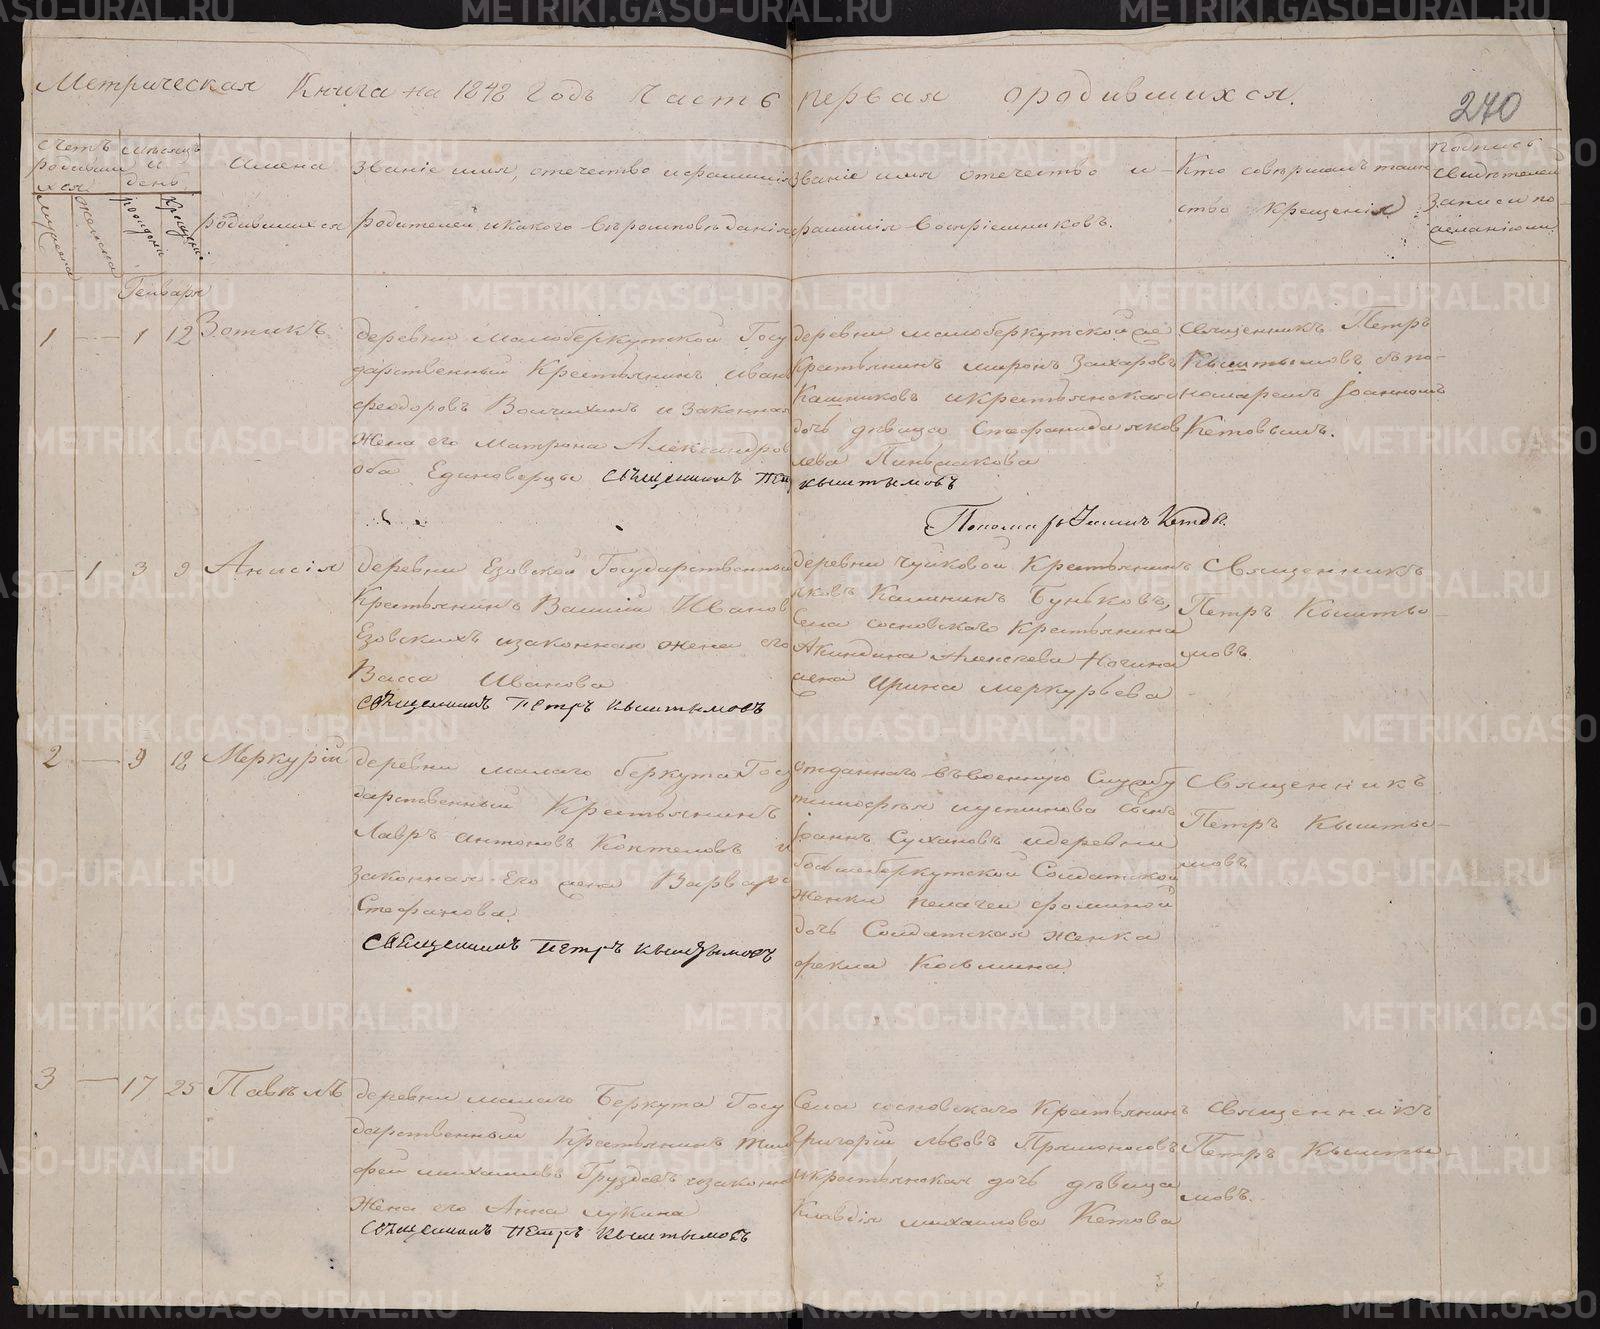 Метрическая Книга на 1848 Годъ Часть первая ородившихся.
270
Счетъ родившихся
мужеска
женска
Мѣсяцъ и день
рожденія
крещенія
Имена
родившихся
Званіе имя, отечество и фамилія
родителей, и какого вѣроисповѣданія
Званіе имя отечество и
фамилія воспріемниковъ.
Кто совершалъ таин
ство крещенія
Подпись
свидѣтелей
записи по
желанію
Генваря
1 — 1 12 Зотикъ
деревни Малоберкутской Госу
дарственный Крестьянинъ Иванъ
феодоровъ и Законная
Жена его Матрона Александров
оба Единоверцы Священникъ Пет
деревни малоберкутской
Крестьянинъ миронъ Захаровъ
Кашниковъ икрестьянская
дочь девица Стефанида яков
лева
Кыштымовъ
Священникъ Петръ
Кыштымовъ съ по-
номаремъ Іоанномъ
Кетовымъ.
Пономарь Кетовъ.
1 3 9 Анисія
деревни Езовской Государственный
Крестьянинъ Василій Иванов
Езовскихъ изаконная жена его
Васса Иванова
Священникъ Петръ Кыштымовъ
деревни Чуйковой Крестьянинъ
яковъ Калининъ Буньковъ,
Села сосновскаго Крестьянина
Акиндина Алексеева
жена Ирина меркурьева
Священникъ
Петръ Кышты-
мовъ
2 — 9 18 Меркурій
деревни малаго беркута Госу
дарственный Крестьянинъ
Лавръ антоновъ Коптеловъ и
законная Его жена Варвара
Стефанова.
Священникъ Петръ Кыштымовъ
отданнаго въвоенную Службу
тимофея иустинова сынъ
Іоаннъ Сухановъ идеревни
большеберкутской Солдатской
женки пелагеи фоминой
дочь Солдатская женка
фекла Косьмина
Священникъ
Петръ Кышты-
мовъ
3 — 17 25 Павелъ
деревни малаго Беркута Госу
дарственный Крестьянинъ тимо
фей михаиловъ Груздевъ изаконна
Жена его Анна лукина
Священникъ Петръ Кыштымовъ
Села сосновскаго Крестьянинъ
Григорій львовъ Прямоносовъ
икрестьянская дочь девица
Клавдія михаилова Кетова
Священникъ
Петръ Кышты-
мовъ.
METRIKI.GASO-URAL.RU